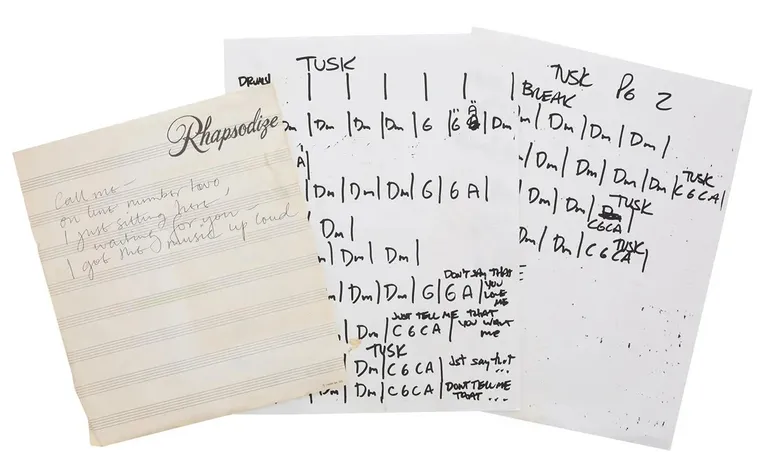 Rhapsodize
Call me —
on line number two
I just sitting here,
waiting for you —
I got the music up loud
TUSK
DRUMS | | | | | |
Dm | Dm | Dm | Dm | G | G A | Dm
A |
| Dm | Dm | Dm | G | G A |
| Dm |
Dm | Dm | Dm |
DON'T SAY THAT
| Dm | Dm | Dm | G | G A | YOU LOVE ME
JUST TELL ME THAT
| Dm | C G C A | YOU WANT ME
TUSK
| Dm | C G C A | JST SAY THAT ...
| Dm | Dm | C G C A | DON'T TELL ME THAT ...
TUSK PG 2
BREAK
Dm | Dm | Dm | Dm |
TUSK
| Dm | Dm | Dm | Dm | C G C A |
TUSK
Dm | Dm | C G C A |
TUSK
Dm | Dm | C G C A |